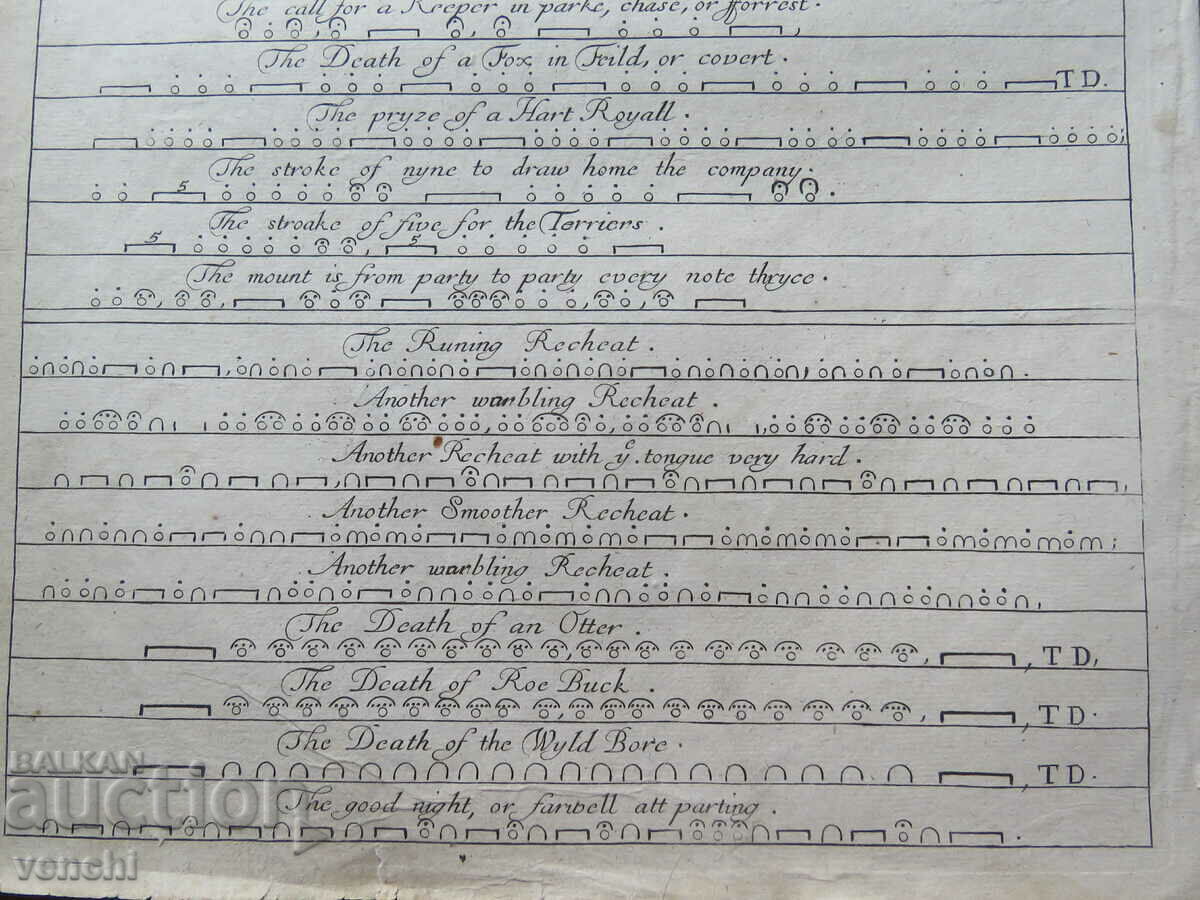 The call for a Keeper in parke, chase, or fforrest.
The Death of a Fox in Feild, or covert.
T D.
The pryze of a Hart Royall.
The stroke of nyne to draw home the company.
5
The stroake of five for the Terriers.
5 5
The mount is from party to party every note thryce.
The Runing Recheat.
Another warbling Recheat.
Another Recheat with yͤ tongue very hard.
Another Smoother Recheat.
Another warbling Recheat.
The Death of an Otter.
, T D,
The Death of Roe Buck.
, T D.
The Death of the Wyld Bore.
, T D.
The good night, or farwell att parting.
BALKAN
auction
venchi